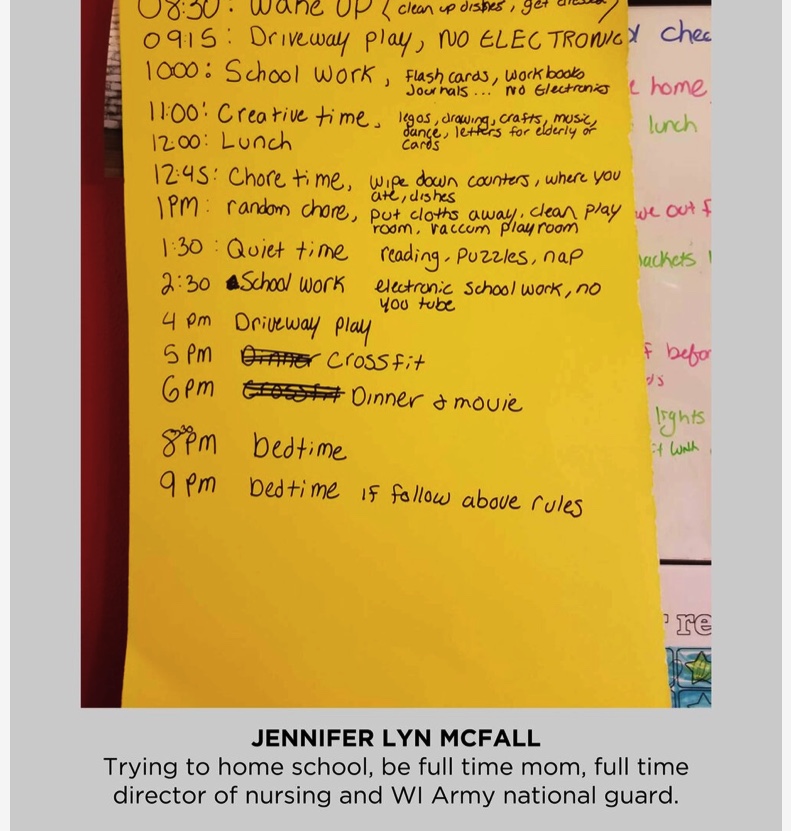 08:30: Wake UP (clean up dishes, get dressed)
0915: Driveway play, NO ELECTRONIC
1000: School work, Flash cards, workbooks
Journals... NO Electronics
11:00: Creative time, legos, drawing, crafts, music,
dance, letters for elderly or
cards
12:00: Lunch
12:45: Chore time, wipe down counters, where you
ate, dishes
1PM: random chore, put cloths away, clean play
room, vaccum playroom
1:30: Quiet time reading, Puzzles, nap
2:30 School work electronic School work, no
you tube
4 pm Driveway play
5 pm Dinner Crossfit
6pm Crossfit Dinner & movie
8:30 pm bedtime
9 pm bedtime if follow above rules
chec
home
lunch
we out f
ackets
f befor
ds
lights
it walk
re
JENNIFER LYN MCFALL
Trying to home school, be full time mom, full time
director of nursing and WI Army national guard.